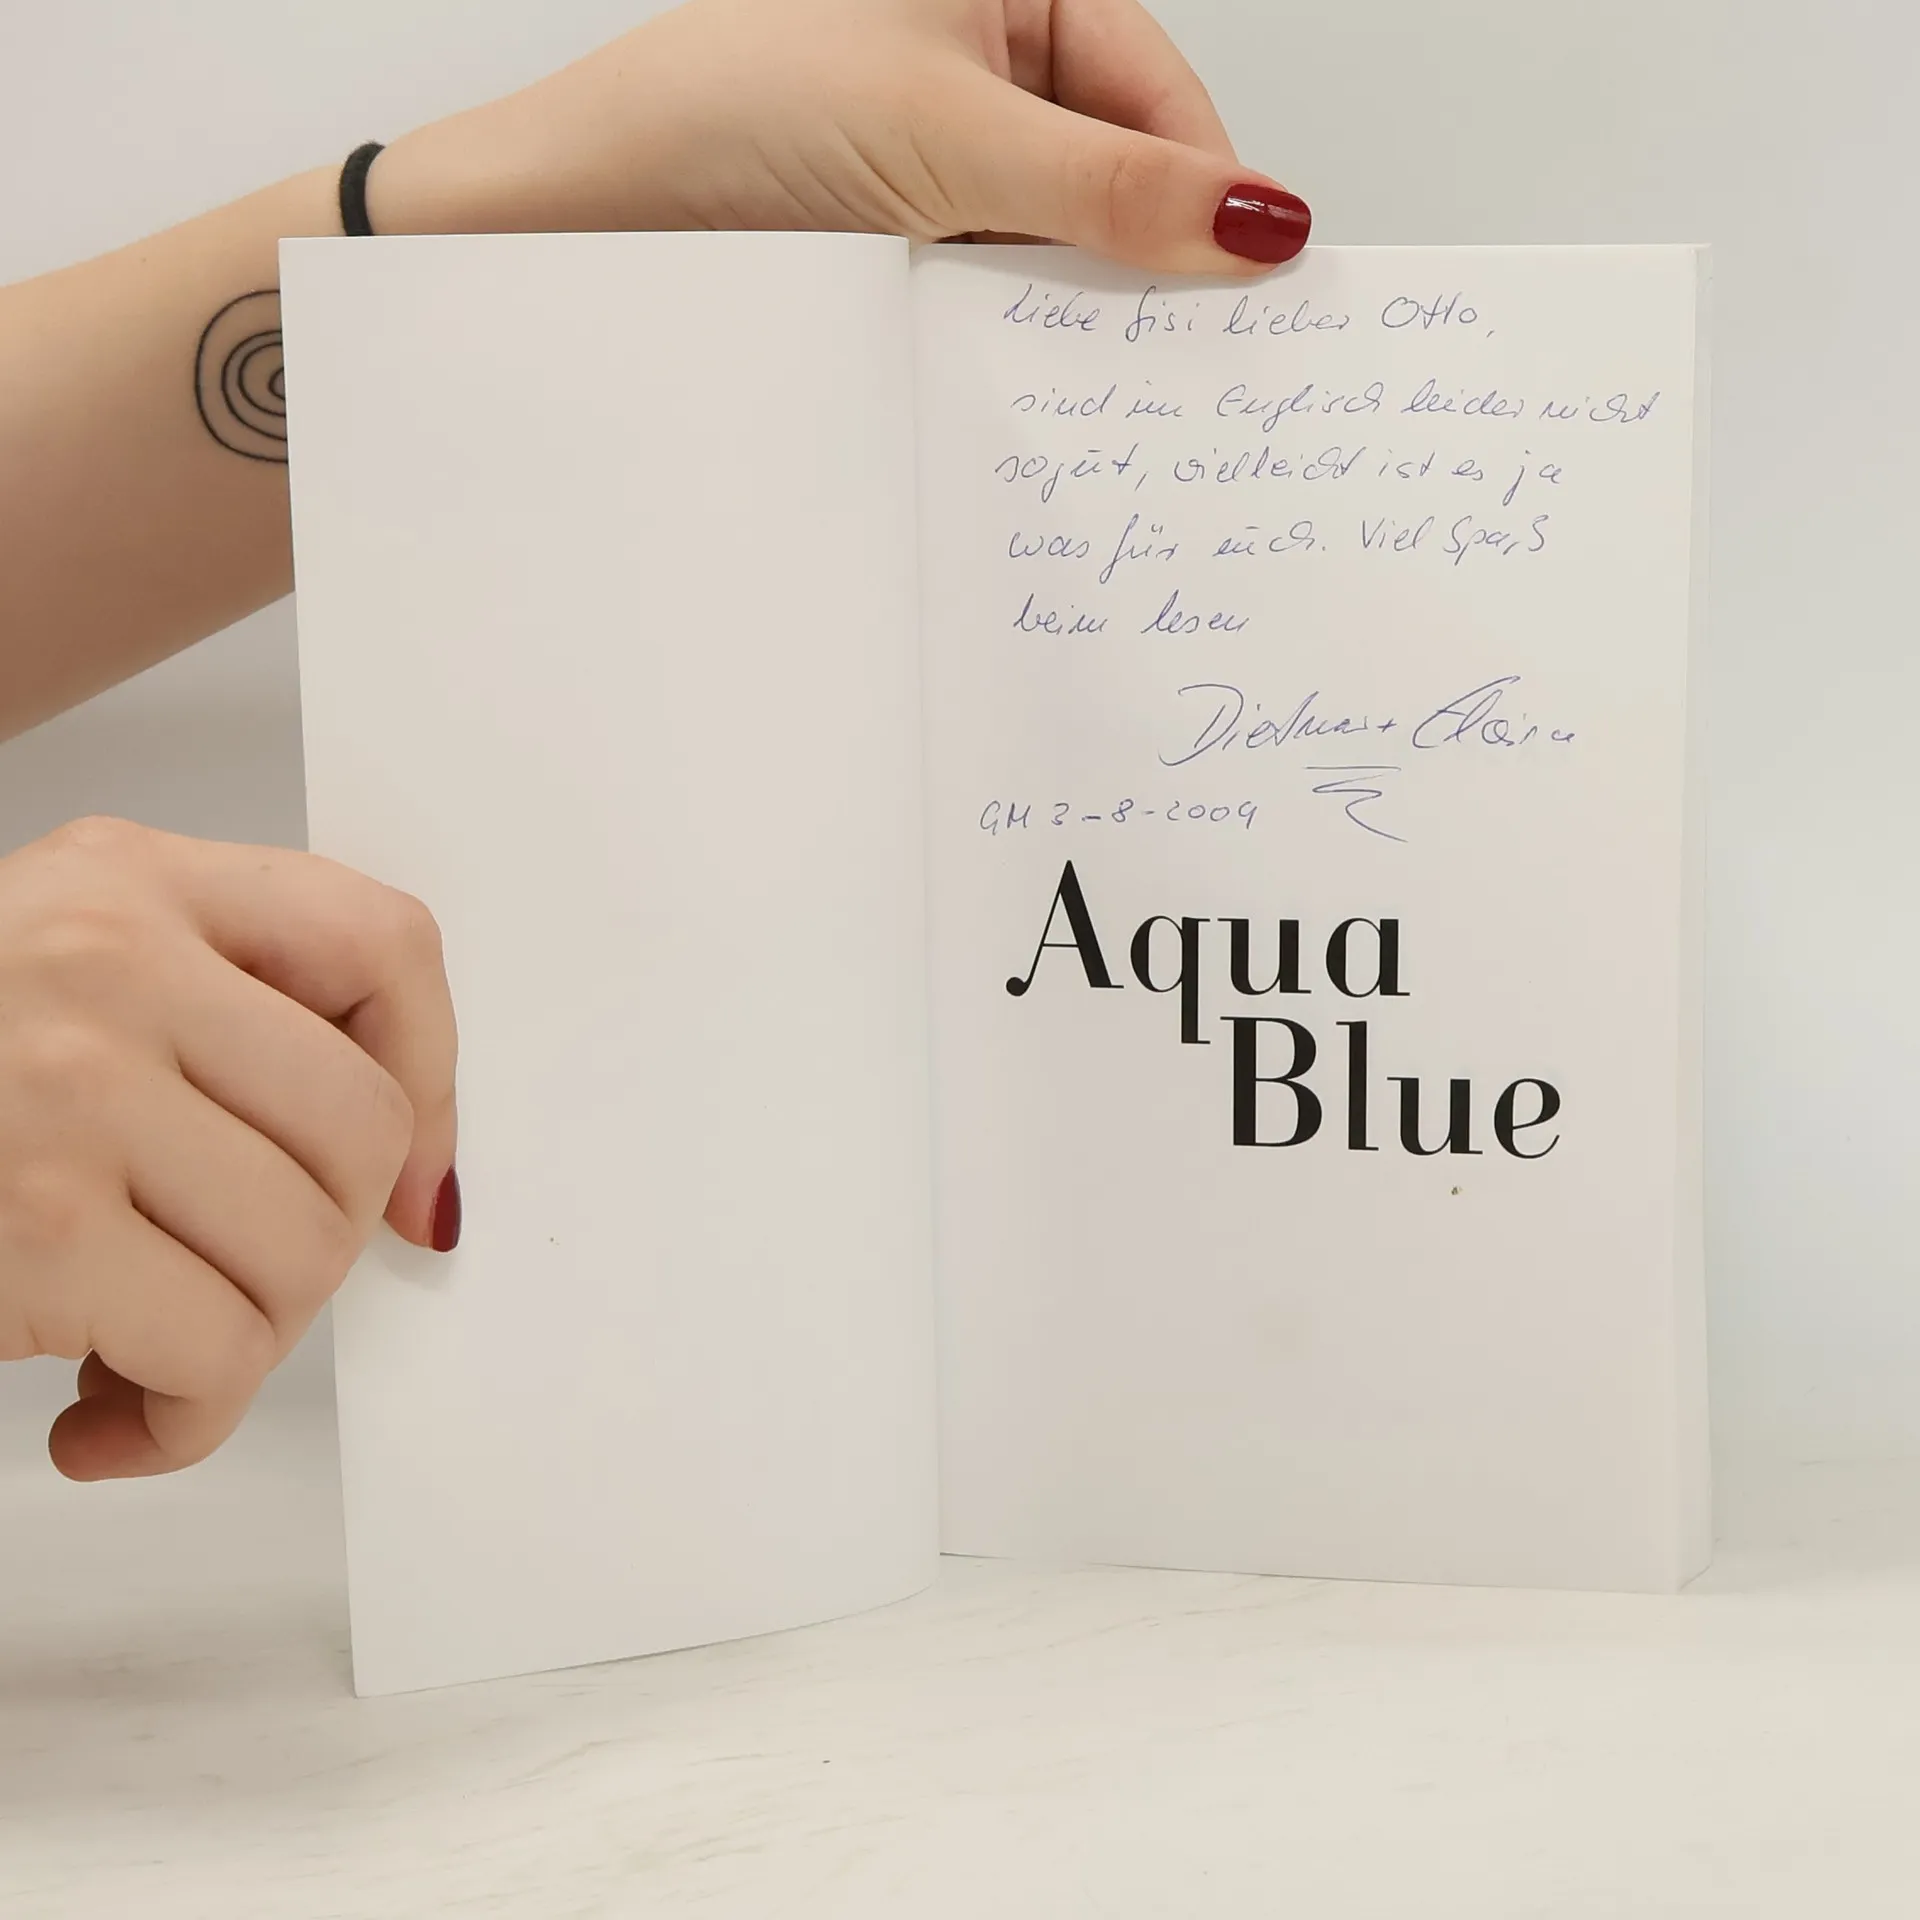 Liebe Sisi lieber Otto,
sind im Englisch leider nicht
so gūt, vielleicht ist es ja
was für eūch. Viel Spaß
beim lesen
Dietmar +
GM 3-8-2009
Aqua
Blue